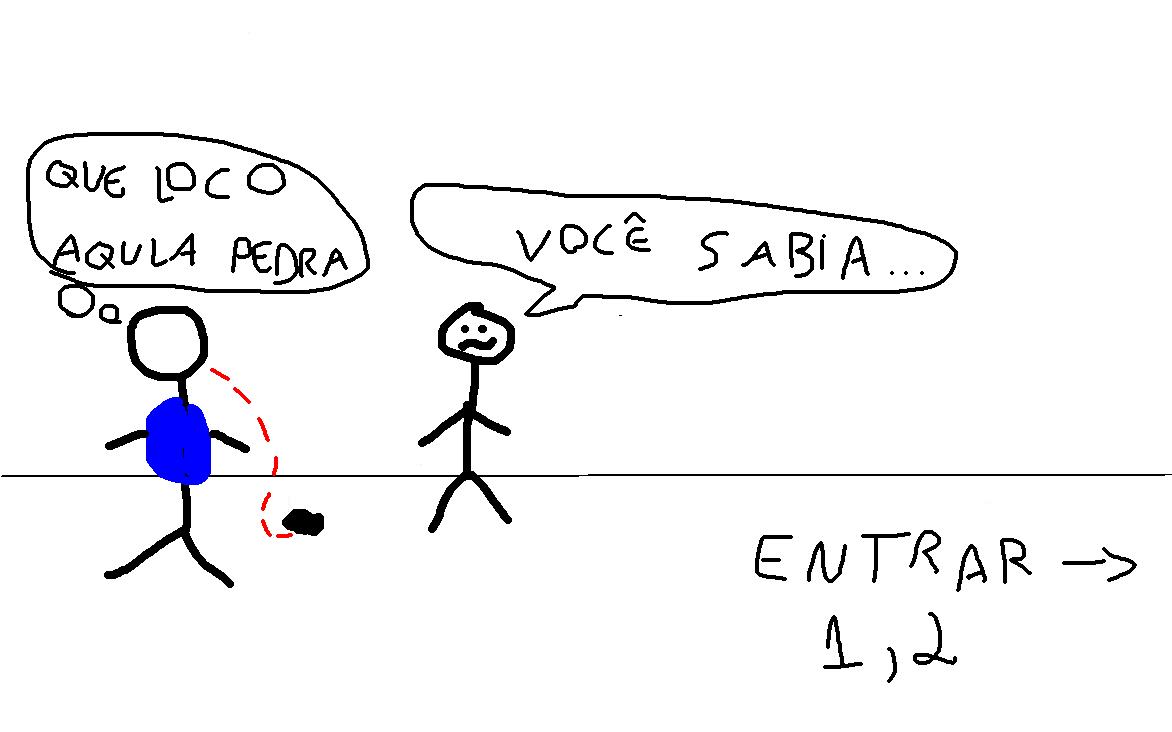 QUE LOCO
AQULA PEDRA
VOCÊ SABIA...
ENTRAR →
1,2